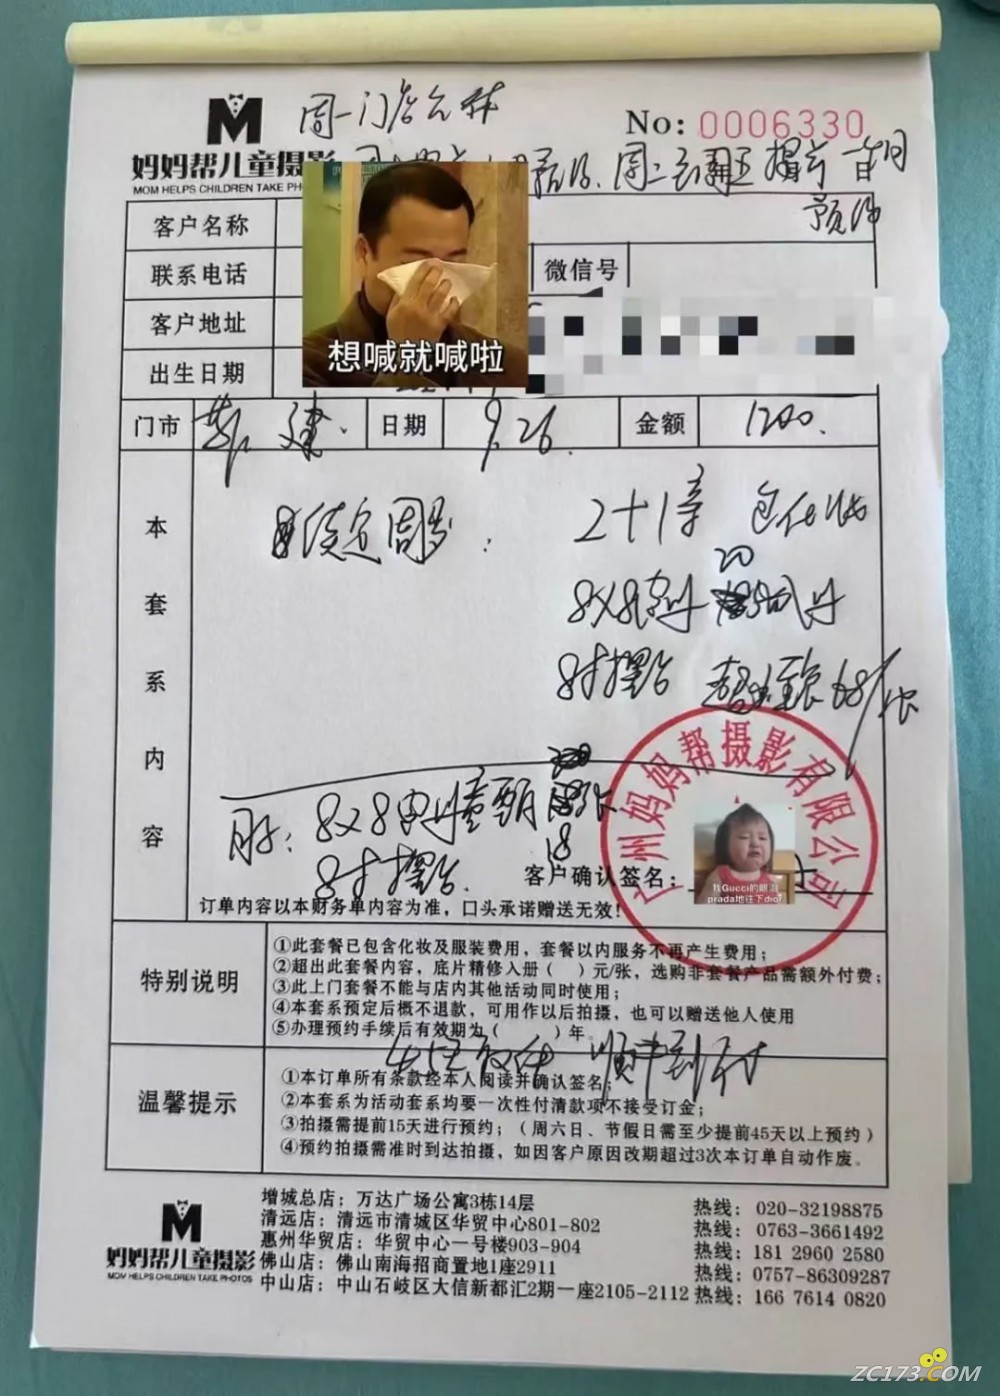 周一门店公休
No: 0006330
妈妈帮儿童摄影
MOM HELPS CHILDREN TAKE PH
周二
预约
客户名称
联系电话
微信号
客户地址
出生日期
想喊就喊啦
门市
建
日期
9.26
金额
1200.
本套系内容
2大1亲
20
8x8
8寸摆台
68/张
8x8
18
8寸摆台
广州妈妈帮摄影有限公司
我Gucci的眼泪
prada地往下dior
客户确认签名：
订单内容以本财务单内容为准，口头承诺赠送无效！
特别说明
①此套餐已包含化妆及服装费用，套餐以内服务不再产生费用；
②超出此套餐内容，底片精修入册（ ）元/张，选购非套餐产品需额外付费；
③此上门套餐不能与店内其他活动同时使用；
④本套系预定后概不退款，可用作以后拍摄，也可以赠送他人使用
⑤办理预约手续后有效期为（ ）年。
顺丰到付
温馨提示
①本订单所有条款经本人阅读并确认签名；
②本套系为活动套系均要一次性付清款项不接受订金；
③拍摄需提前15天进行预约；（周六日、节假日需至少提前45天以上预约）
④预约拍摄需准时到达拍摄，如因客户原因改期超过3次本订单自动作废。
妈妈帮儿童摄影
MOM HELPS CHILDREN TAKE PHOTOS
增城总店：万达广场公寓3栋14层 热线：020-32198875
清远店：清远市清城区华贸中心801-802 热线：0763-3661492
惠州华贸店：华贸中心一号楼903-904 热线：181 2960 2580
佛山店：佛山南海招商置地1座2911 热线：0757-86309287
中山店：中山石岐区大信新都汇2期一座2105-2112 热线：166 7614 0820
ZC173.COM